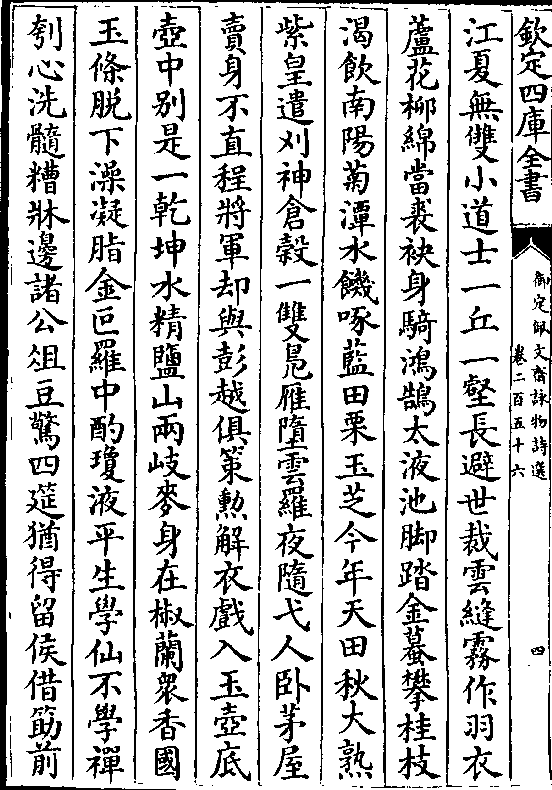 欽定四庫全書
御定佩文齋詠物詩選
卷二百五十六
四
江夏無雙小道士一丘一壑長避世裁雲縫霧作羽衣
蘆花柳綿當裘袂身騎鴻鵠太液池脚踏金蟇攀桂枝
渴飲南陽菊潭水饑啄藍田栗玉芝今年天田秋大熟
紫皇遣刈神倉穀一雙鳬雁墮雲羅夜隨弋人卧茅屋
賣身不直程將軍却與彭越俱策勲解衣戲入玉壺底
壺中别是一乾坤水精鹽山兩岐麥身在椒蘭衆香國
玉條脱下澡凝脂金叵羅中酌瓊液平生學仙不學禪
刳心洗髓糟牀邊諸公俎豆驚四筵猶得留侯借筯前